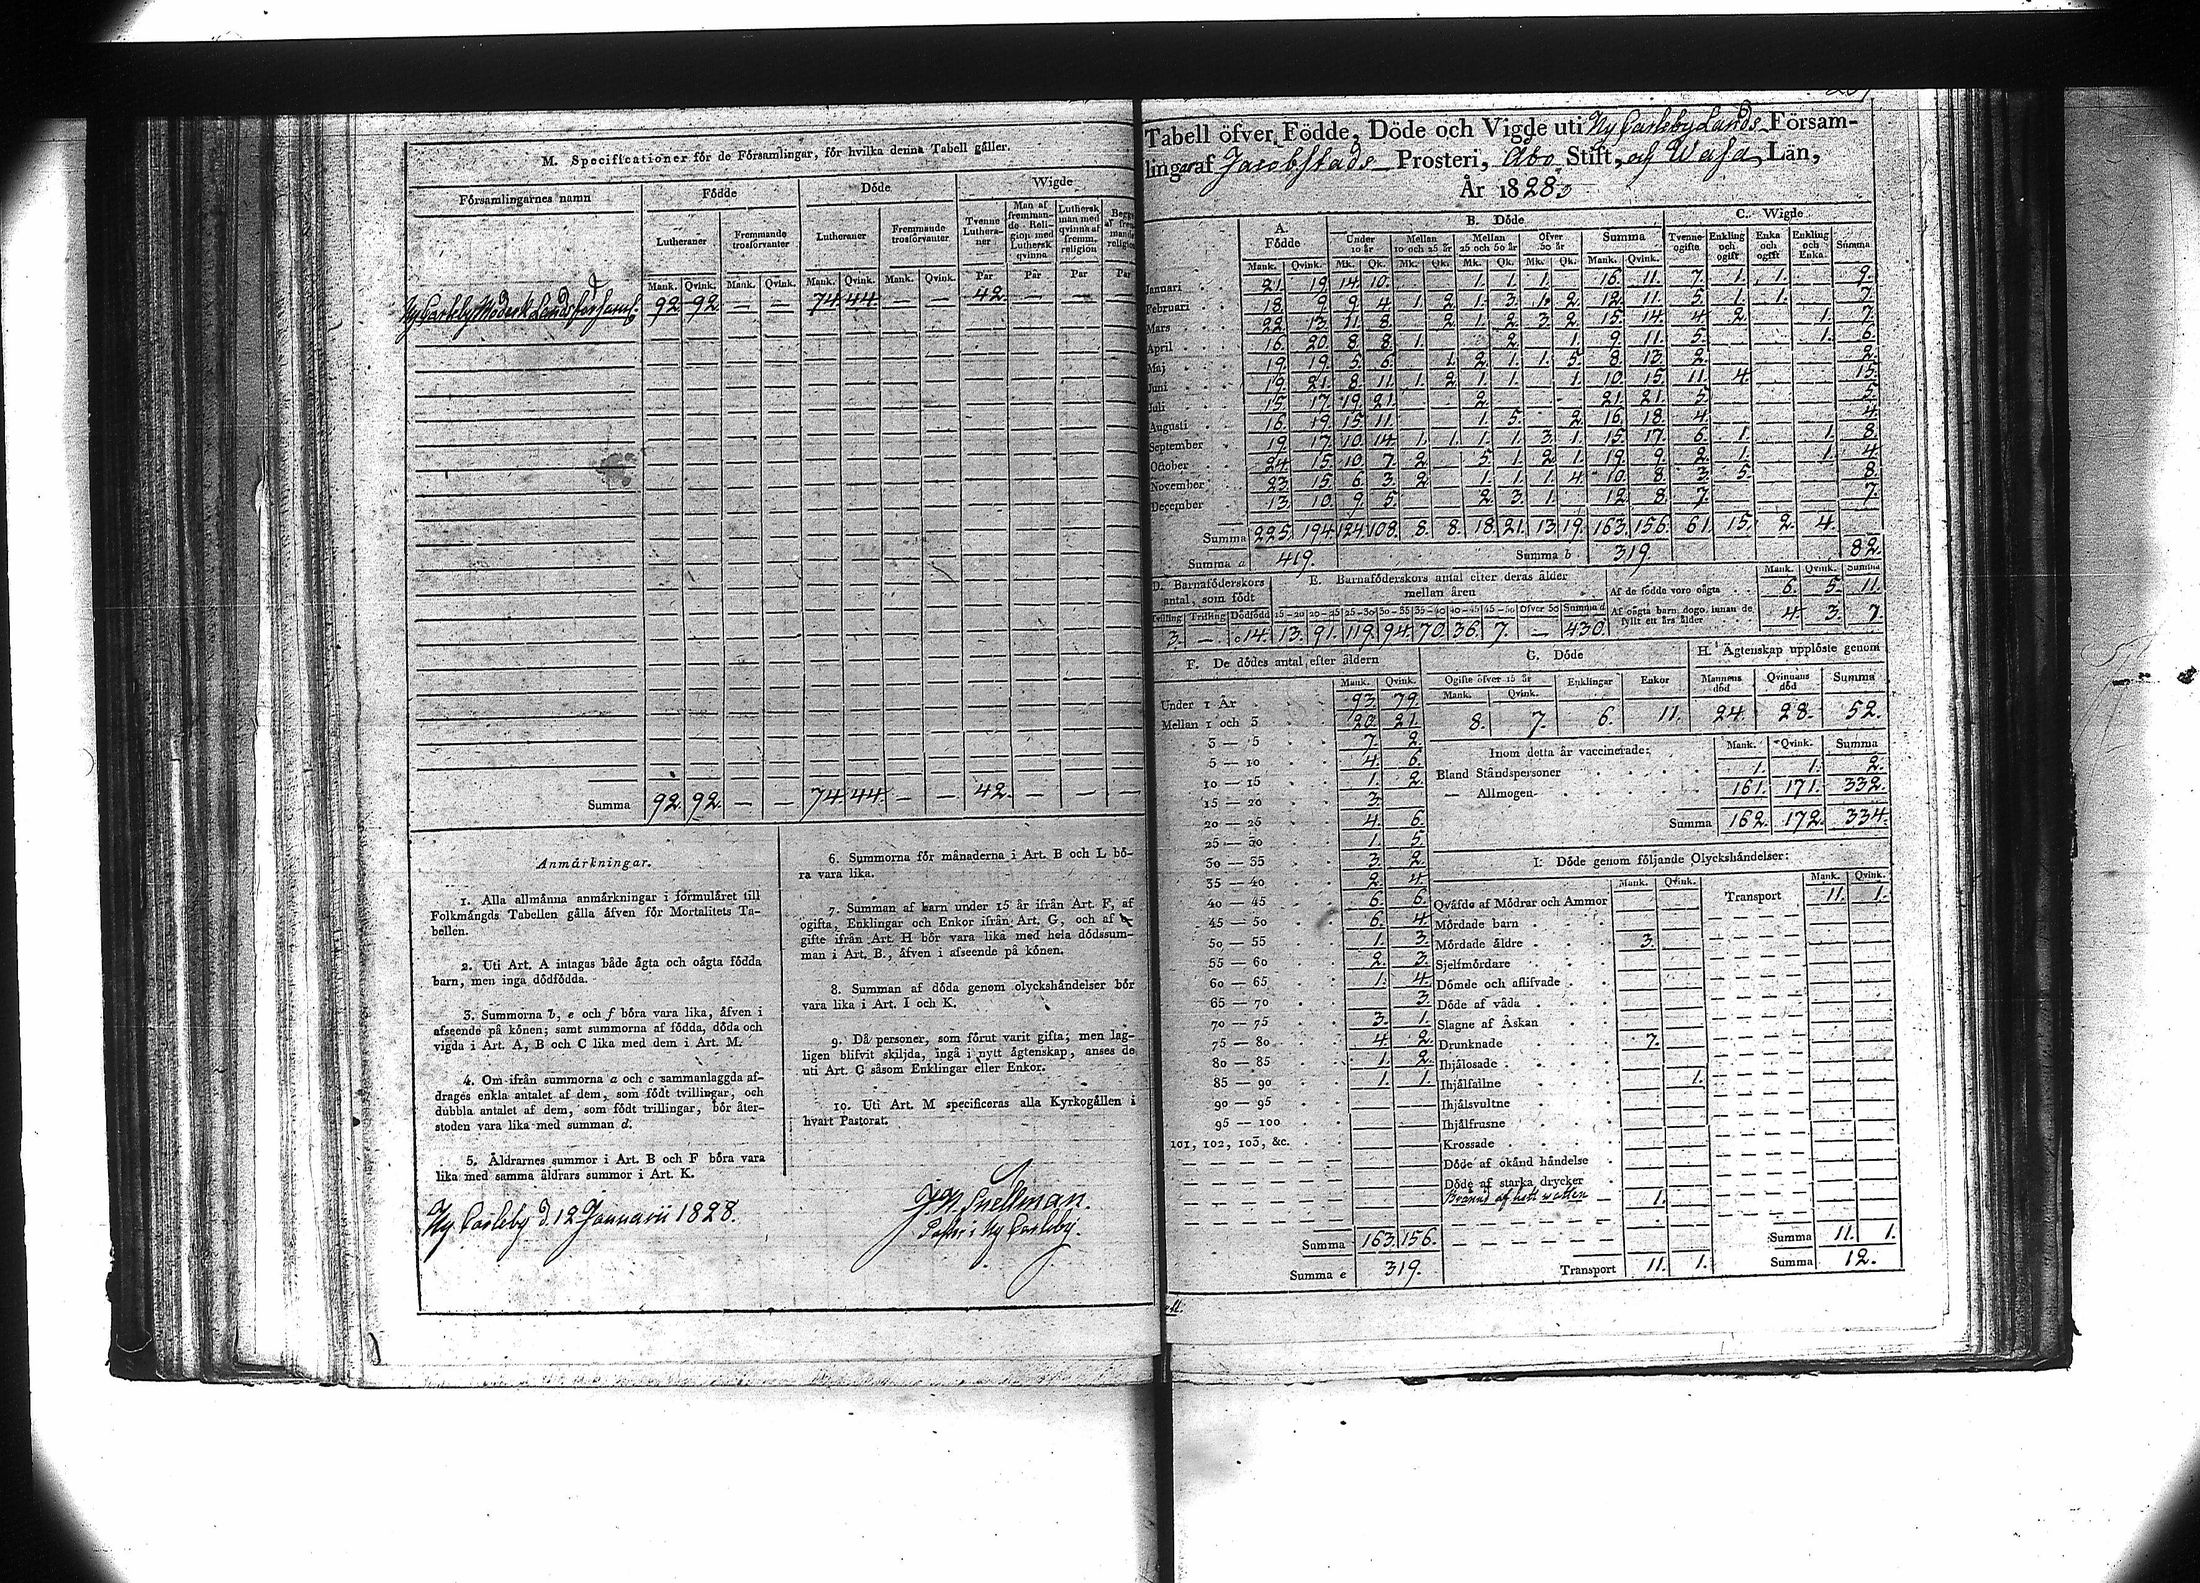 M. Specificationer för de Församlingar, för hvilka denna Tabell gäller.
Församlingarnes namn | Födde | Döde | Wigde
Lutheraner | Fremmande trosförvanter | Lutheraner | Fremmande trosförvanter | Tvenne Lutheraner | Man af fremmande Religion med Luthersk qvinna | Luthersk man med qvinna af fremm. religion
Mank. Qvink. Mank. Qvink. Mank. Qvink. Mank. Qvink. Par Par Par Par
Ny Carleby Moderk Landsförsaml. 92 92 — — 74 44 — — 42. — — —
Summa 92. 92. — — 74 44. — — 42. — — —
Anmärkningar.
1. Alla allmänna anmärkningar i formuläret till
Folkmängds Tabellen gälla äfven för Mortalitets Ta-
bellen.
2. Uti Art. A intagas både ägta och oägta födda
barn, men inga dödfödda.
3. Summorna b, e och f böra vara lika, äfven i
afseende på könen; samt summorna af födda, döda och
vigda i Art. A, B och C lika med dem i Art. M.
4. Om ifrån summorna a och c sammanlaggda af-
drages enkla antalet af dem, som födt tvillingar, och
dubbla antalet af dem, som födt trillingar, bör åter-
stoden vara lika med summan d.
5. Åldrarnes summor i Art. B och F böra vara
lika med samma åldrars summor i Art. K.
6. Summorna för månaderna i Art. B och L bö-
ra vara lika.
7. Summan af barn under 15 år ifrån Art. F, af
ogifta, Enklingar och Enkor ifrån Art. G, och af
gifte ifrån Art. H bör vara lika med hela dödssum-
man i Art. B., äfven i afseende på könen.
8. Summan af döda genom olyckshändelser bör
vara lika i Art. I och K.
9. Då personer, som förut varit gifta, men lag-
ligen blifvit skiljda, ingå i nytt ägtenskap, anses de
uti Art. C såsom Enklingar eller Enkor.
10. Uti Art. M specificeras alla Kyrkogällen i
hvart Pastorat.
Ny Carleby d. 12 Januarii 1828.
Snellman.
Pastor i Ny Carleby.
Tabell öfver Födde, Döde och Vigde uti Ny Carleby Lands Försam-
ling af Jacobstads Prosteri, Åbo Stift, och Wasa Län,
År 1828
A. Födde | B. Döde | C. Wigde
Under 10 år | Mellan 10 och 25 år | Mellan 25 och 50 år | Öfver 50 år | Summa | Tvenne ogifte | Enkling och ogift | Enka och ogift | Enkling och Enka | Summa
Mank. Qvink. Mk. Qk. Mk. Qk. Mk. Qk. Mk. Qk. Mank. Qvink.
Januari 21. 19. 14. 10. 1. 1. 1. 16. 11. 7. 1. 1. 9.
Februari 18. 9. 9. 4. 1. 2. 1. 3. 1. 2. 12. 11. 5. 1. 1. 7.
Mars 22. 13. 11. 8. 2. 1. 2. 3. 2. 15. 14. 4. 2. 1. 7.
April 16. 20. 8. 8. 1. 2. 1. 9. 11. 5. 1. 6.
Maj 19. 19. 5. 6. 1. 2. 1. 1. 5. 8. 13. 2. 2.
Juni 19. 21. 8. 11. 1. 2. 1. 1. 1. 10. 15. 11. 4. 15.
Juli 15. 17. 19. 21. 2. 21. 21. 5. 5.
Augusti 16. 19. 15. 11. 1. 5. 2. 16. 18. 4. 4.
September 19. 17. 10. 14. 1. 1. 1. 1. 3. 1. 15. 17. 6. 1. 1. 8.
October 24. 15. 10. 7. 2. 5. 1. 2. 1. 19. 9. 2. 1. 1. 4.
November 23. 15. 6. 3. 2. 1. 1. 1. 4. 10. 8. 3. 5. 8.
December 13. 10. 9. 5. 2. 3. 1. 12. 8. 7. 7.
Summa 225. 194. 124. 108. 8. 8. 18. 21. 13. 19. 163. 156. 61. 15. 2. 4.
Summa a 419. Summa b 319. 82.
D. Barnaföderskors antal, som födt
Tvilling Trilling Dödfödd
3. — 14.
E. Barnaföderskors antal efter deras ålder mellan åren
15—20 20—25 25—30 30—35 35—40 40—45 45—50 Öfver 50 Summa d
13. 91. 119. 94. 70. 36. 7. — 430
Mank. Qvink. Summa
Af de födde voro oägta 6. 5. 11.
Af oägta barn dogo innan de fyllt ett års ålder 4. 3. 7.
F. De dödes antal efter åldern
Mank. Qvink.
Under 1 År 93. 79.
Mellan 1 och 3 20. 21.
3 — 5 7. 2.
5 — 10 4. 6.
10 — 15 1. 2.
15 — 20 3.
20 — 25 4. 6.
25 — 30 1. 5.
30 — 35 3. 2.
35 — 40 2. 4.
40 — 45 6. 6.
45 — 50 6. 4.
50 — 55 1. 3.
55 — 60 2. 3.
60 — 65 1. 4.
65 — 70 3.
70 — 75 3. 1.
75 — 80 4. 2.
80 — 85 1. 2.
85 — 90 1. 1.
90 — 95
95 — 100
101, 102, 103, &c.
Summa 163. 156.
Summa e 319.
G. Döde
Ogifte öfver 15 år | Enklingar | Enkor
Mank. Qvink.
8. 7. 6. 11.
H. Ägtenskap upplöste genom
Mannens död | Qvinnans död | Summa
24. 28. 52.
Inom detta år vaccinerade: Mank. Qvink. Summa
Bland Ståndspersoner 1. 1. 2.
— Allmogen 161. 171. 332.
Summa 162. 172. 334.
I. Döde genom följande Olyckshändelser:
Mank. Qvink. Mank. Qvink.
Qväfde af Mödrar och Ammor
Mördade barn
Mördade äldre 3.
Sjelfmördare
Dömde och aflifvade
Döde af våda
Slagne af Åskan
Drunknade 7.
Ihjälosade
Ihjälfallne 1.
Ihjälsvultne
Ihjälfrusne
Krossade
Döde af okänd händelse
Döde af starka drycker
Bränd af hett watten 1.
Transport 11. 1.
Transport 11. 1.
Summa 11. 1.
Summa 12.